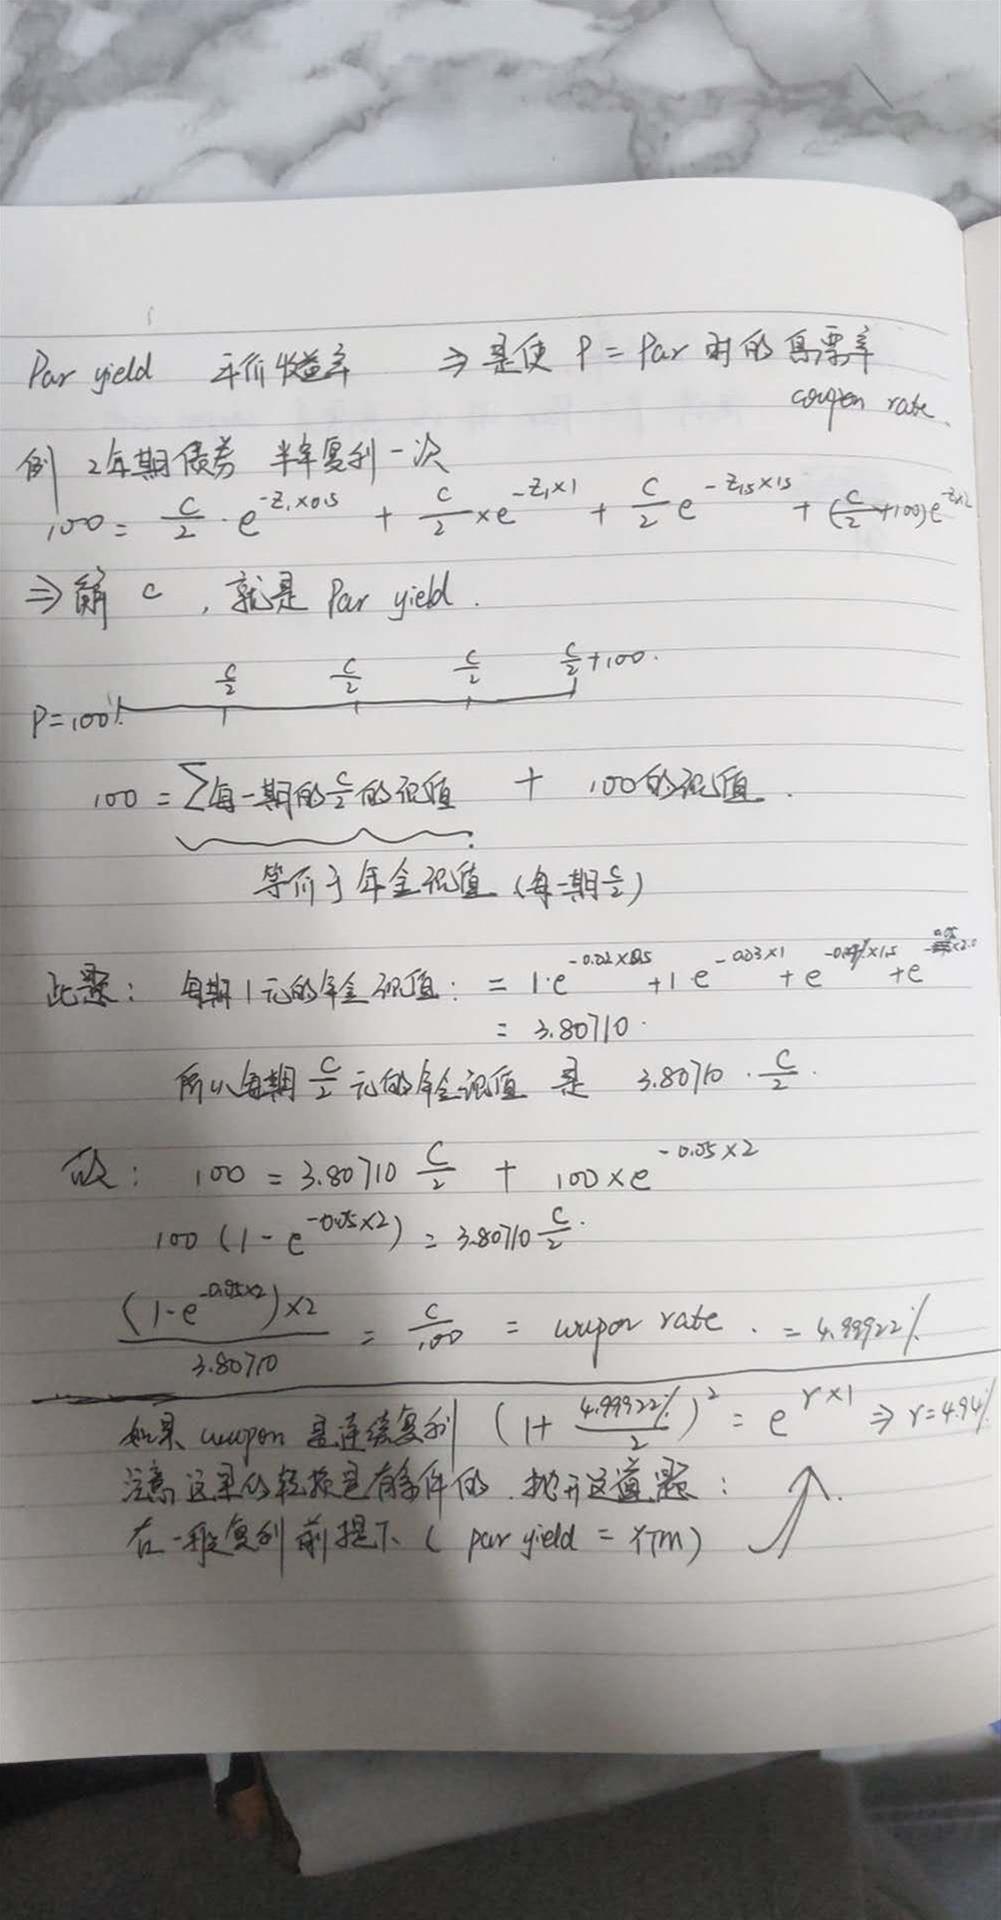 Par yield 平价收益率 ⇒ 是使 P = Par 时的 息票率
coupon rate.
例 2年期债券 半年复利一次
100 = C/2 · e^(-Z.×0.5) + C/2 × e^(-Z1×1) + C/2 e^(-Z1.5×1.5) + (C/2+100) e^(-Z2×2)
⇒ 解 C , 就是 Par yield .
C/2 C/2 C/2 C/2+100.
P=100
100 = ∑每一期的 C/2 的现值 + 100的现值 .
等价于年金现值 (每一期 C/2)
此题: 每期1元的年金现值: = 1·e^(-0.02×0.5) + 1 e^(-0.03×1) + e^(-0.04×1.5) + e^(-0.05×2.0)
= 3.80710 ·
所以每期 C/2 元的年金现值 是 3.80710 · C/2 .
故: 100 = 3.80710 C/2 + 100×e^(-0.05×2)
100 (1 - e^(-0.05×2)) = 3.80710 C/2 .
(1-e^(-0.05×2))×2 / 3.80710 = C/100 = coupon rate . = 4.99922%
如果 coupon 是连续复利 (1 + 4.99922%/2)^2 = e^(r×1) ⇒ r = 4.94%
注意 这里的转换是有条件的 . 抛开这道题 :
在一般复利前提下 ( par yield = YTM)